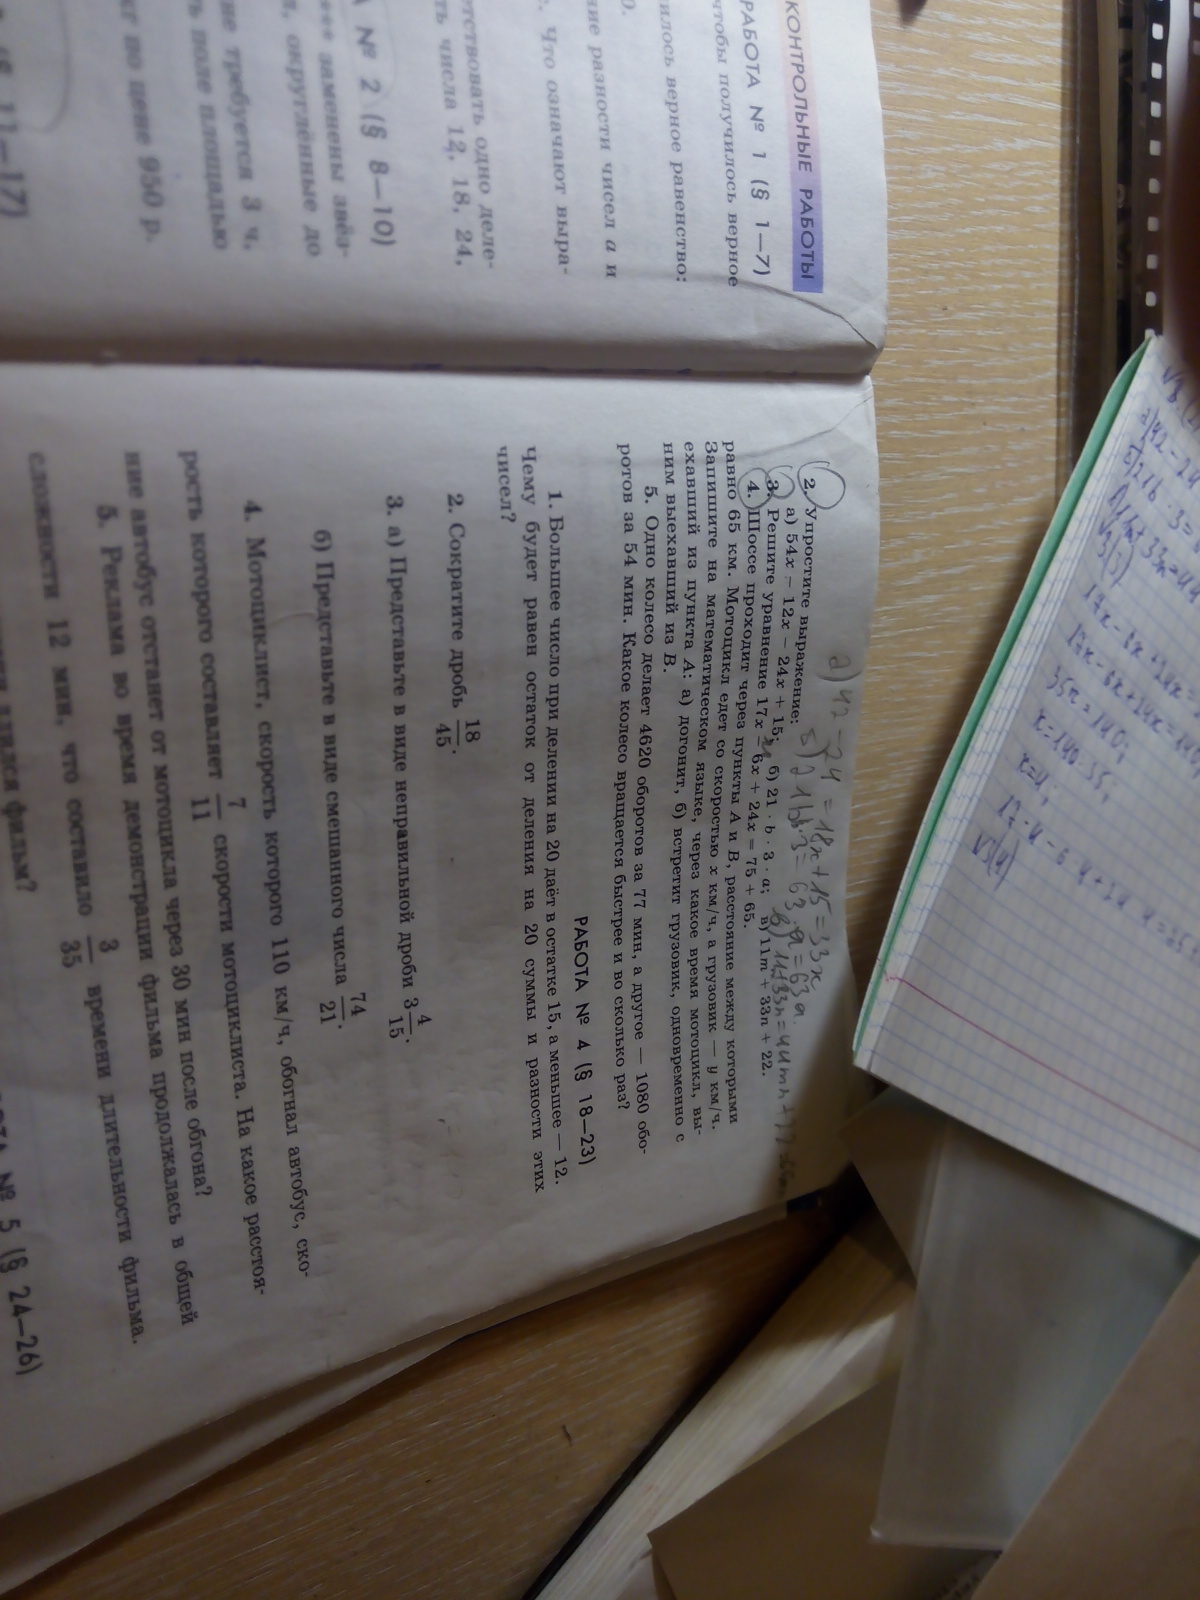 КОНТРОЛЬНЫЕ РАБОТЫ
РАБОТА № 1 (§ 1—7)
чтобы получилось верное
илось верное равенство:
ние разности чисел a и
Что означают выра-
етствовать одно деле-
ть числа 12, 18, 24,
№ 2 (§ 8—10)
заменены звёз-
округлённые до
требуется 3 ч,
поле площадью
кг по цене 950 р.
11—17)
а) 42 − 24 = 18x + 15 = 33x
2. Упростите выражение:
а) 54x − 12x − 24x + 15; б) 21 · b · 3 · a; в) 11m + 33n + 22.
3. Решите уравнение 17x − 6x + 24x = 75 + 65.
4. Шоссе проходит через пункты A и B, расстояние между которыми
равно 65 км. Мотоцикл едет со скоростью x км/ч, а грузовик — y км/ч.
Запишите на математическом языке, через какое время мотоцикл, вы-
ехавший из пункта A: а) догонит, б) встретит грузовик, одновременно с
ним выехавший из B.
5. Одно колесо делает 4620 оборотов за 77 мин, а другое — 1080 обо-
ротов за 54 мин. Какое колесо вращается быстрее и во сколько раз?
РАБОТА № 4 (§ 18—23)
1. Большее число при делении на 20 даёт в остатке 15, а меньшее — 12.
Чему будет равен остаток от деления на 20 суммы и разности этих
чисел?
2. Сократите дробь 18/45.
3. а) Представьте в виде неправильной дроби 3 4/15.
б) Представьте в виде смешанного числа 74/21.
4. Мотоциклист, скорость которого 110 км/ч, обогнал автобус, ско-
рость которого составляет 7/11 скорости мотоциклиста. На какое расстоя-
ние автобус отстанет от мотоцикла через 30 мин после обгона?
5. Реклама во время демонстрации фильма продолжалась в общей
сложности 12 мин, что составило 3/35 времени длительности фильма.
длился фильм?
№ 5 (§ 24—26)
35x = 140;
x = 140 : 35;
x = 4;